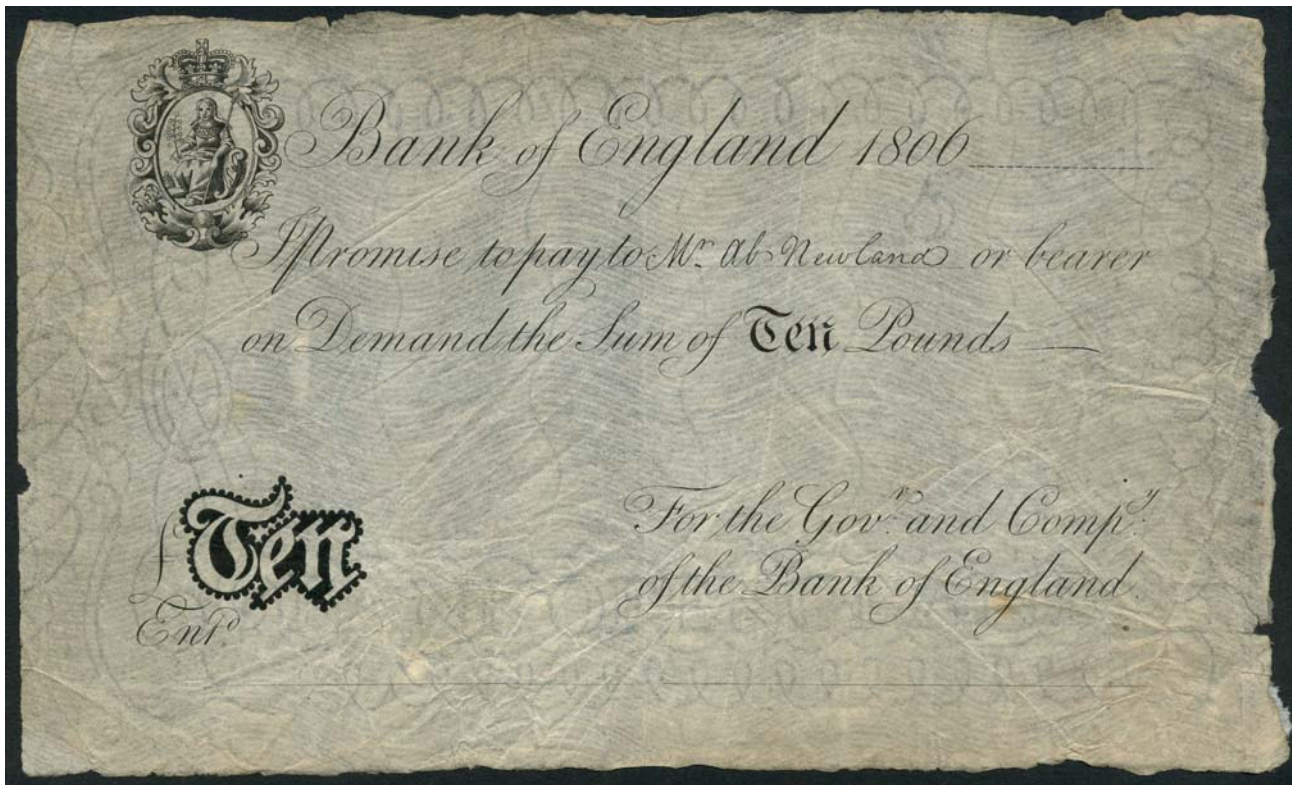 Bank of England 1806
I Promise to pay to Mr. Ab Newland or bearer
on Demand the Sum of Ten Pounds
£Ten
For the Govr. and Compy.
of the Bank of England.
Entd.